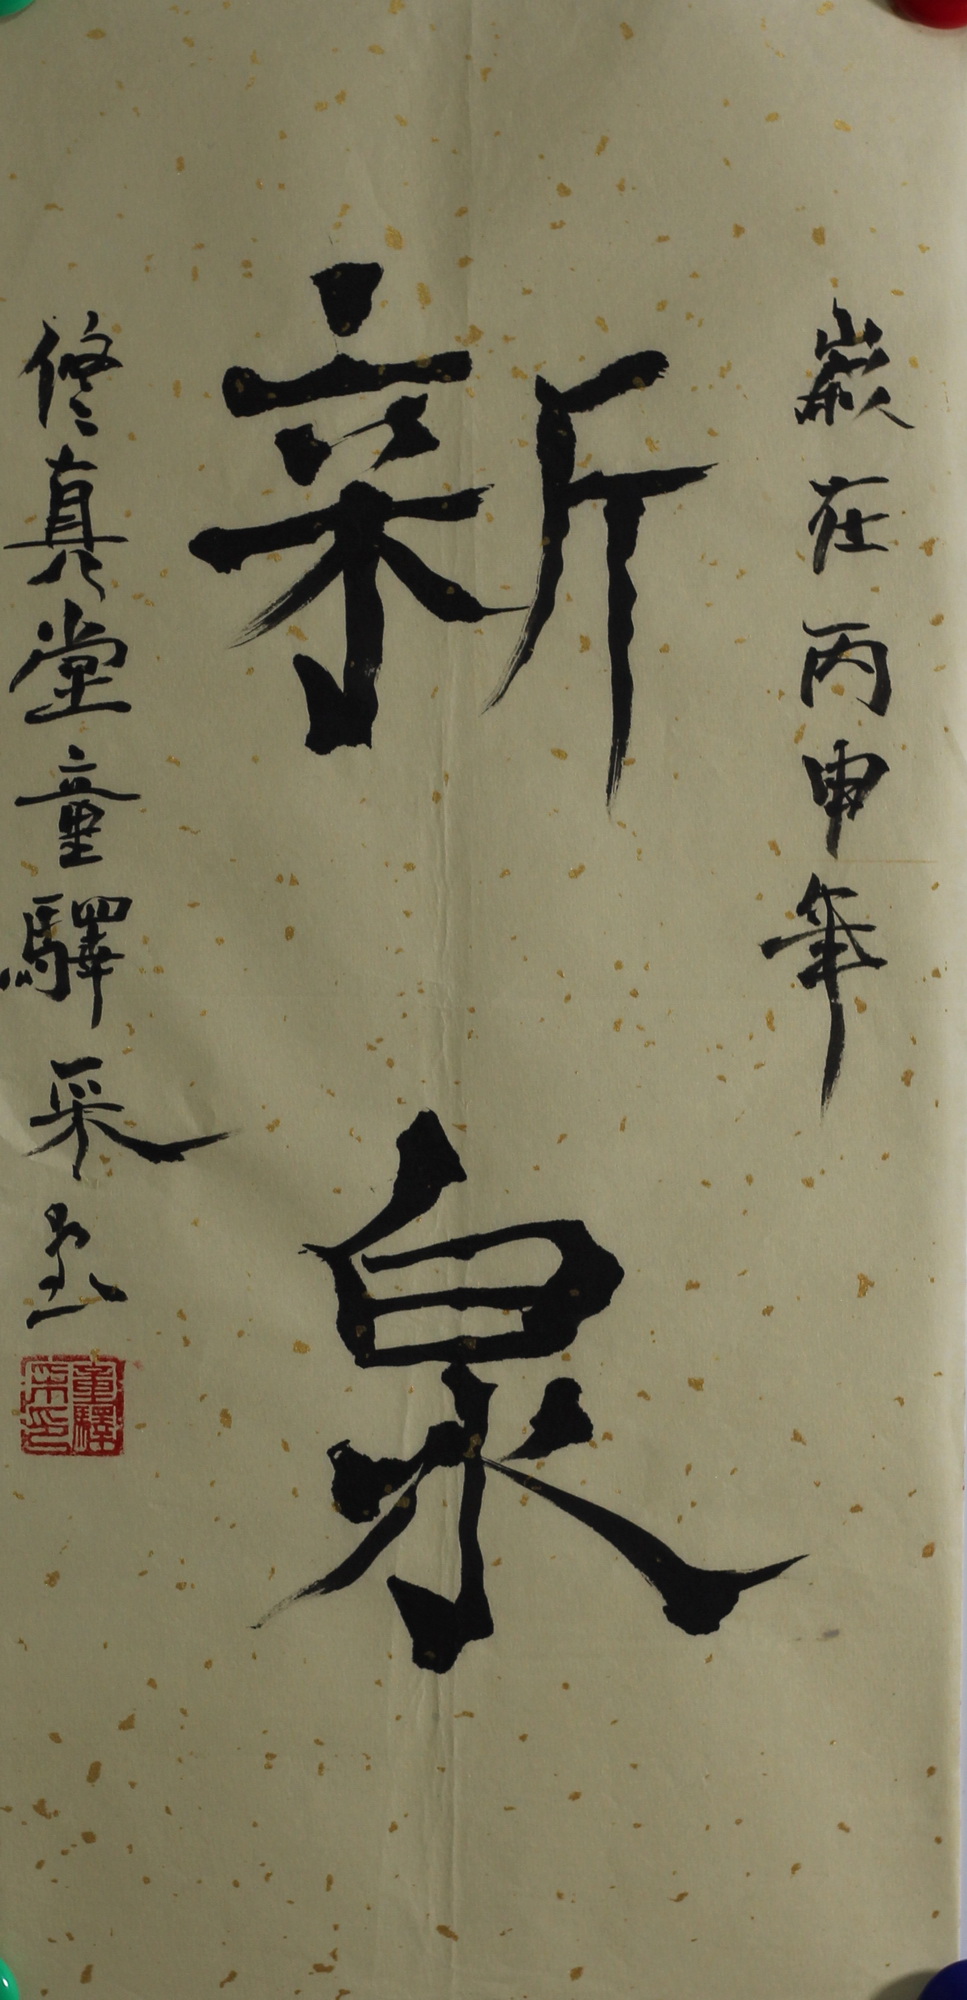 嵗在丙申年
新泉
修真堂童驛采
童驛采印